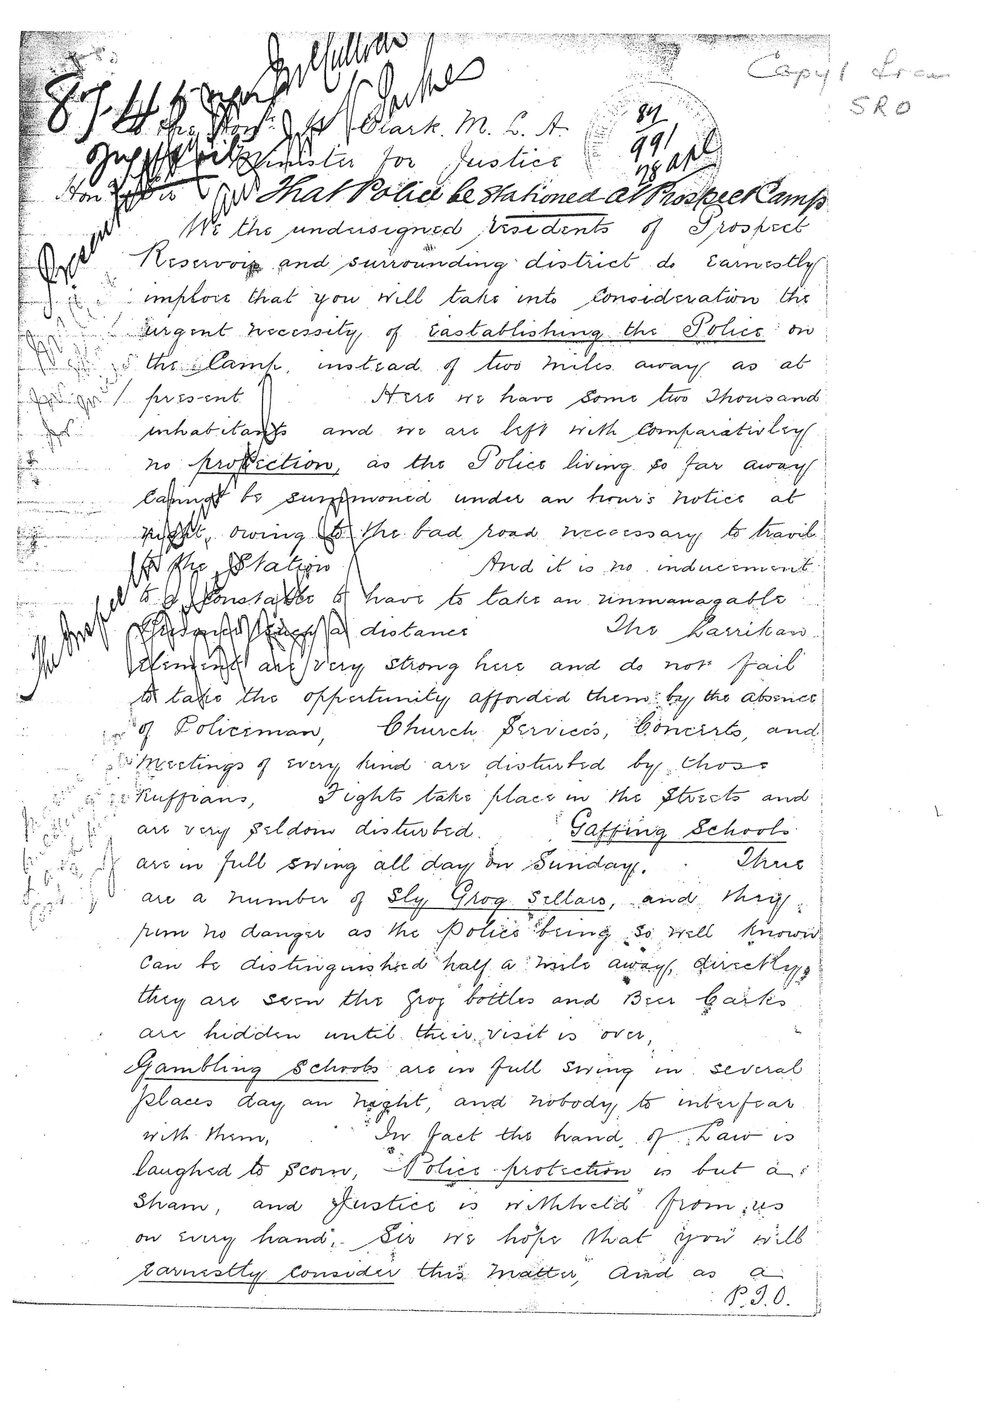 Copy from
SRO
87.4
To The Honl. Clark. M. L. A.
Minister for Justice
84
991
28 apl
Hon Sir
That Police be stationed at Prospect Camp
We the undersigned residents of Prospect
Reservoir and surrounding district do Earnestly
implore that you will take into consideration the
urgent necessity of Eastablishing the Police on
the Camp, instead of two miles away as at
present Here we have some two Thousand
inhabitants and we are left with comparativley
no protection, as the Police living so far away
Cannot be summoned under an hour's notice at
night, owing to the bad road neccessary to travil
to the Station And it is no inducement
to a Constable to have to take an unmanagable
Prisoner such a distance The Larrikan
Element are very strong here and do not fail
to take the opportunity afforded them by the absence
of Policeman, Church Services, Concerts, and
Meetings of every kind are disturbed by those
Ruffians, Fights take place in the Streets and
are very seldom disturbed. Gaffing Schools
are in full swing all day on Sunday. There
are a number of Sly Grog Sellars, and they
run no danger as the Police being so well known
Can be distinguished half a mile away, directly
they are seen the Grog bottles and Beer Carks
are hidden until their visit is over,
Gambling Schools are in full swing in several
places day an night, and nobody to interfear
with them, In fact the hand of Law is
laughed to scorn, Police protection is but a
Sham, and Justice is withheld from us
on every hand, Sir we hope that you will
Earnestly consider this matter, And as a
P.T.O.
The Inspector